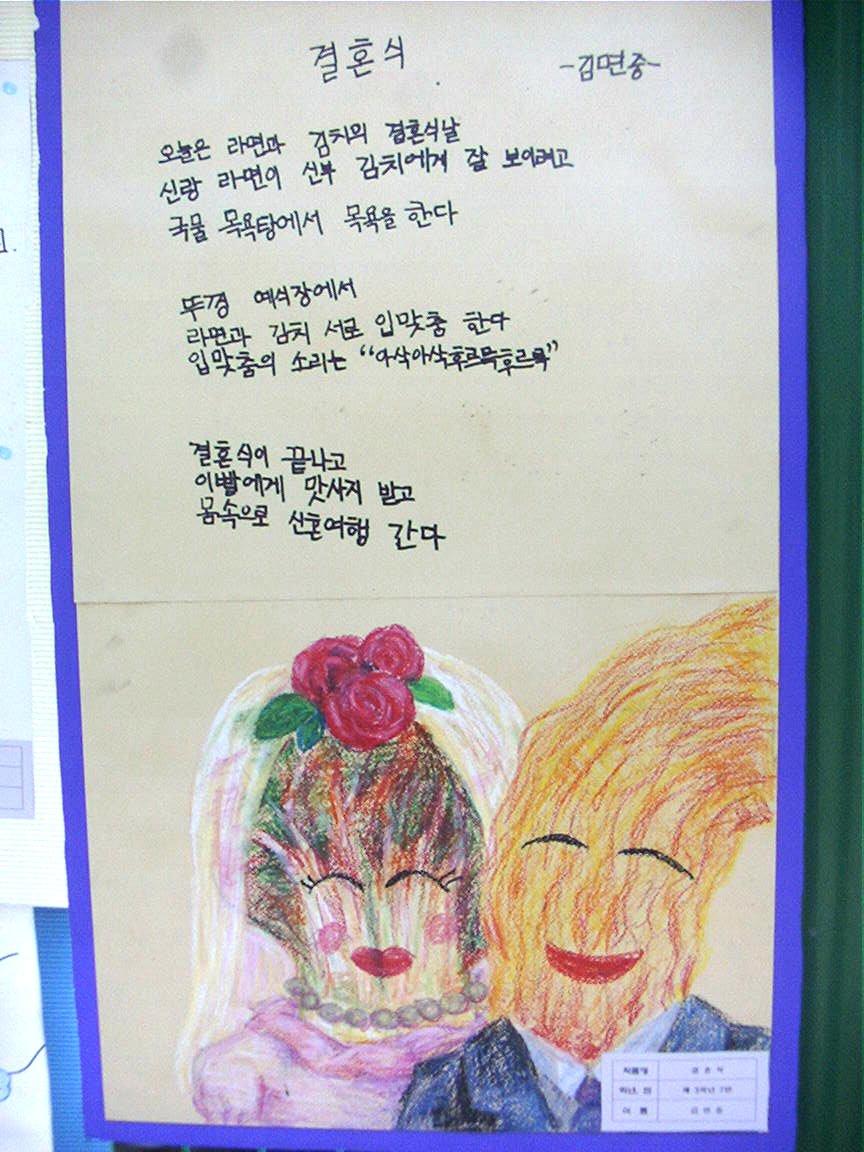 결혼식
-김면중-
오늘은 라면과 김치의 결혼식날
신랑 라면이 신부 김치에게 잘 보이려고
국물 목욕탕에서 목욕을 한다
뚜껑 예식장에서
라면과 김치 서로 입맞춤 한다
입맞춤의 소리는 “아삭아삭후르륵후르륵”
결혼식이 끝나고
이빨에게 맛사지 받고
몸속으로 신혼여행 간다
작품명 결혼식
학년, 반 제 3학년 7반
이 름